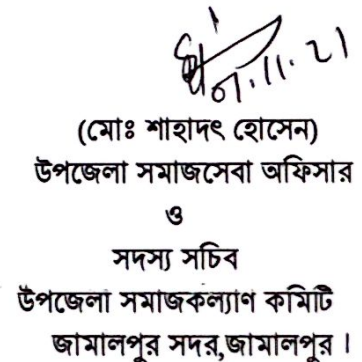 07.11.21
(মোঃ শাহাদৎ হোসেন)
উপজেলা সমাজসেবা অফিসার
ও
সদস্য সচিব
উপজেলা সমাজকল্যাণ কমিটি
জামালপুর সদর,জামালপুর ।